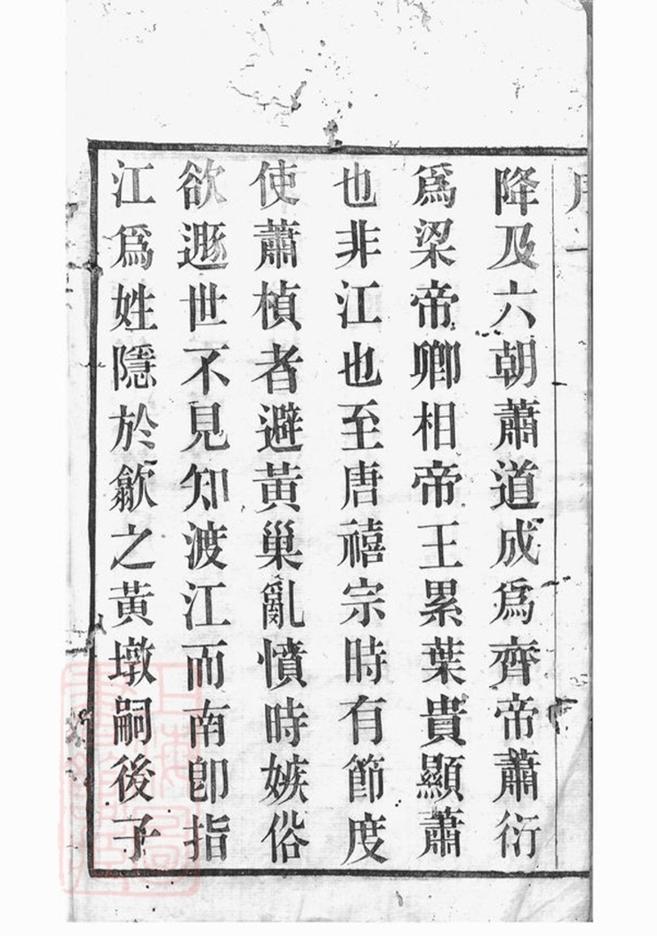 降及六朝蕭道成爲齊帝蕭衍
爲梁帝卿相帝王累葉貴顯蕭
也非江也至唐禧宗時有節度
使蕭楨者避黃巢亂憤時嫉俗
欲遯世不見知渡江而南卽指
江爲姓隱於歙之黃墩嗣後子